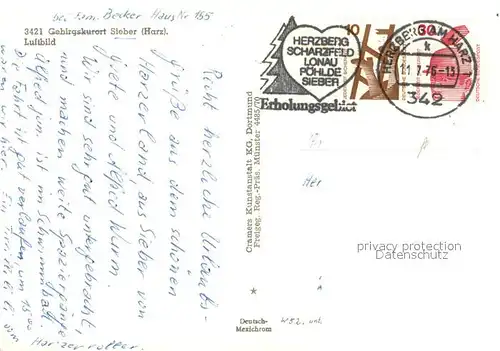 bei Fam. Becker Haus Nr 155
3421 Gebirgskurort Sieber (Harz).
Luftbild
Recht herzliche Urlaubs-
grüße aus dem schönen
Harzerland, aus Sieber von
Grete und Alfred Wurm.
Wir sind sehr gut untergebracht,
und machen weite Spaziergänge
Alfred jun. ist im Schwimmbad
Die Fahrt ist gut verlaufen um 15 00
waren wir hier. Ein
vom Harzer roller.
Cramers Kunstanstalt KG, Dortmund
Freigeg. Reg.-Präs. Münster 4485/70
Deutsch-
Mexichrom
HERZBERG
SCHARZFELD
LONAU
PÖHLDE
SIEBER
Erholungsgebiet
10
30
HERZBERG AM HARZ 1
k
11.7.75-13
342
privacy protection
Datenschutz